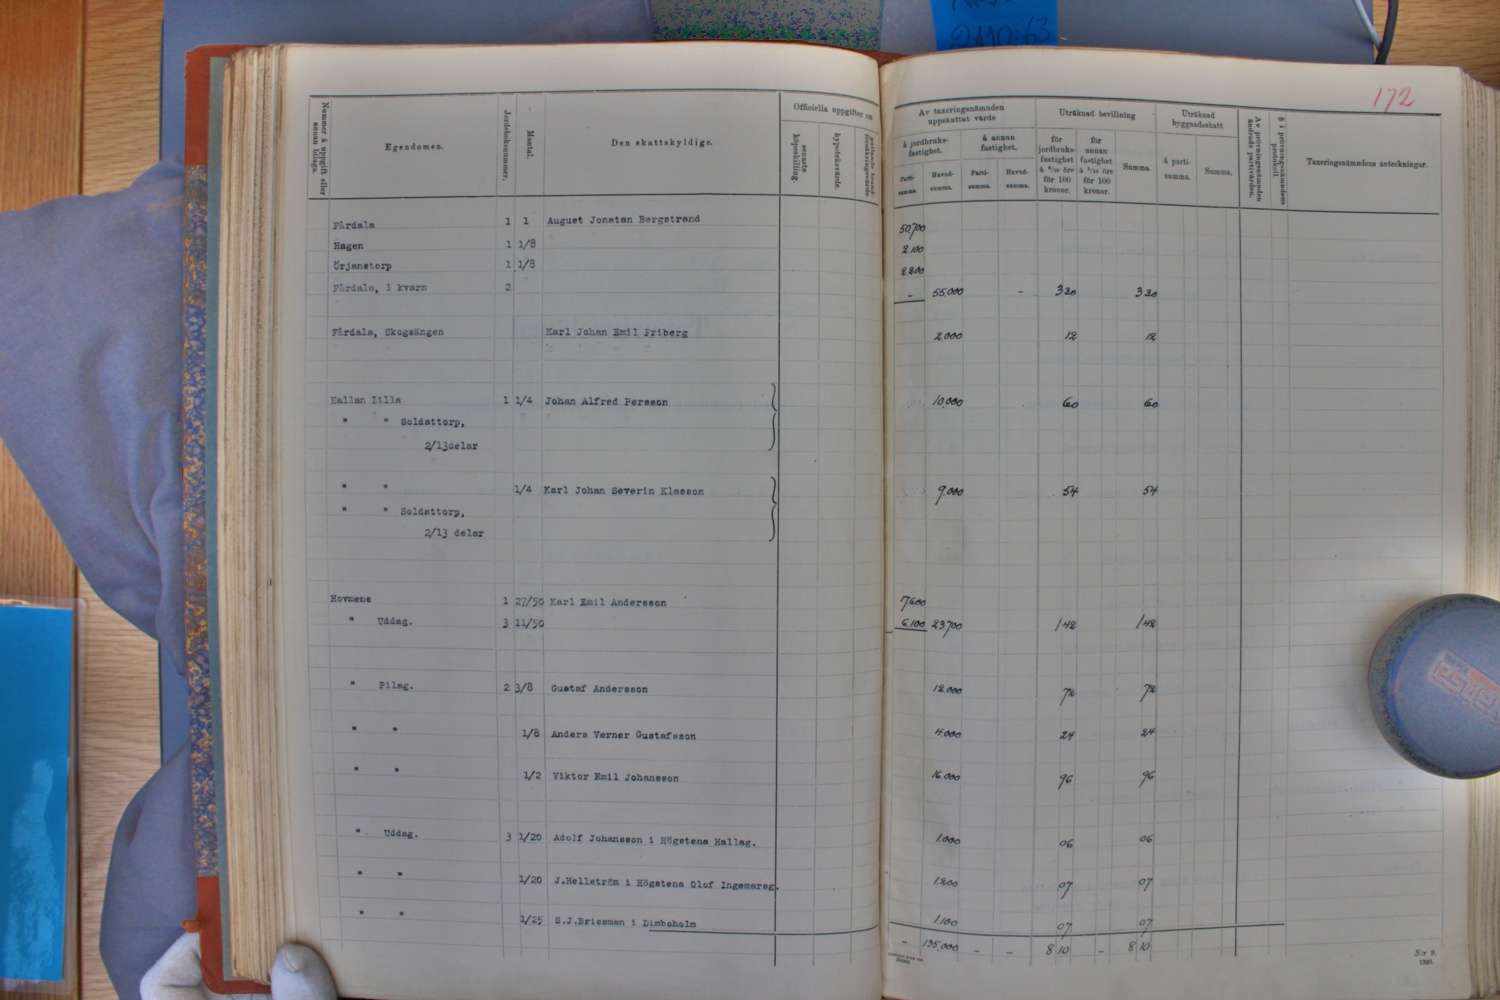 2110:63
172
Nummer å uppgift eller annan bilaga.
Egendomen.
Jordeboksnummer.
Mantal.
Den skattskyldige.
Officiella uppgifter om
senaste köpeskilling.
hypoteksvärde.
gällande brandförsäkringsvärde
Av taxeringsnämnden uppskattat värde
å jordbruksfastighet.
å annan fastighet.
Partisumma.
Huvudsumma.
Partisumma.
Huvudsumma.
Uträknad bevillning
för jordbruksfastighet à 6/10 öre för 100 kronor.
för annan fastighet à 5/10 öre för 100 kronor.
Summa.
Uträknad byggnadsskatt
à partisumma.
Summa.
Av prövningsnämnden ändrade partivärden.
§ i prövningsnämndens protokoll.
Taxeringsnämndens anteckningar.
Fårdala 1 1 August Jonatan Bergstrand 50700
Hagen 1 1/8 2100
Örjanstorp 1 1/8 2200
Fårdala, 1 kvarn 2 - 55.000 - 320 320
Fårdala, Skogsängen Karl Johan Emil Friberg 2.000 12 12
Hallan Lilla 1 1/4 Johan Alfred Persson 10.000 60 60
" " Soldattorp,
2/13delar
" " 1/4 Karl Johan Severin Klasson 9.000 54 54
" " Soldattorp,
2/13 delar
Hovmene 1 27/50 Karl Emil Andersson 17600
" Uddag. 3 11/50 6.100 23700 142 142
" Pilag. 2 3/8 Gustaf Andersson 12.000 72 72
" " 1/8 Anders Verner Gustafsson 4.000 24 24
" " 1/2 Viktor Emil Johansson 16.000 96 96
" Uddag. 3 1/20 Adolf Johansson i Högstena Hallag. 1.000 06 06
" " 1/20 J.Hellström i Högstena Olof Ingemarsg. 1.200 07 07
" " 1/25 S.J.Brissman i Dimboholm 1.100 07 07
- 135.000 - - 8 10 - 8 10
N:r 9.